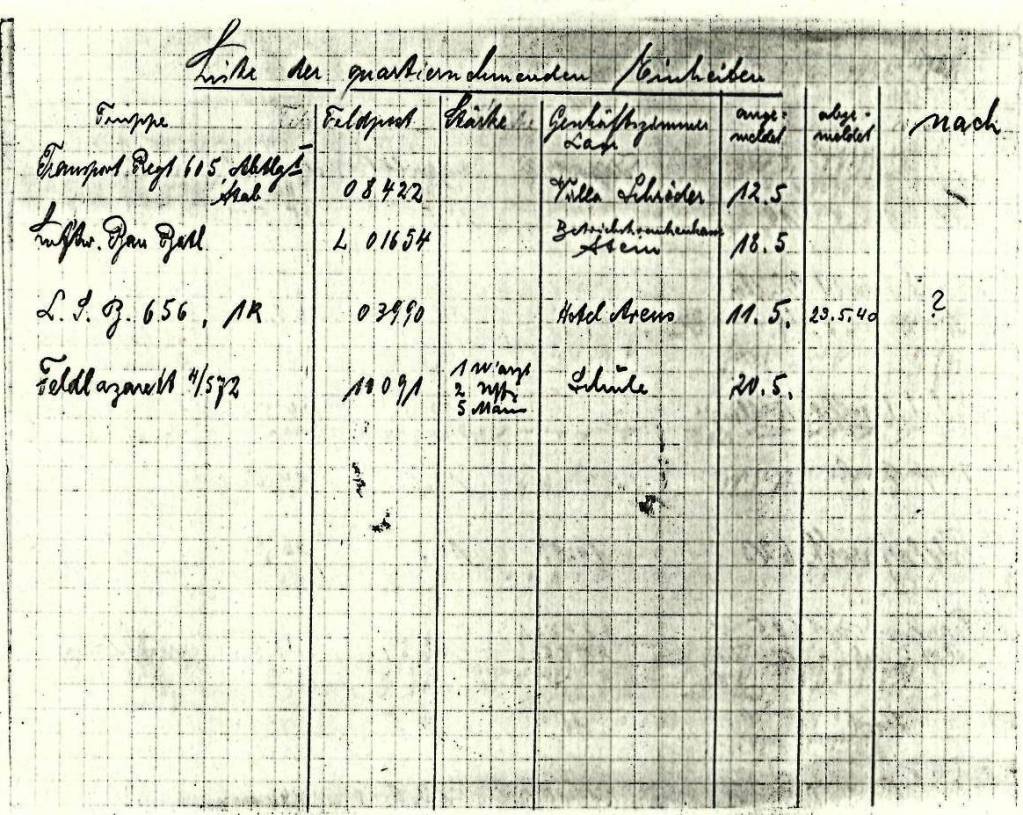 Liste der quartiernehmenden Einheiten
Truppe Feldpost Stärke Geschäftszimmer ange- abge- nach
meldet meldet
Transport Regt 605
Stab 08422 Villa Schröder 12.5
Luftw. Bau Batl. L 01654 Betriebskrankenhaus 18.5
L. S. B. 656, 03990 Hotel Arens 11.5. 23.5.40 ?
Feldlazarett 4/572 091 Schule 20.5.
1
2 Uffz
5 Mann